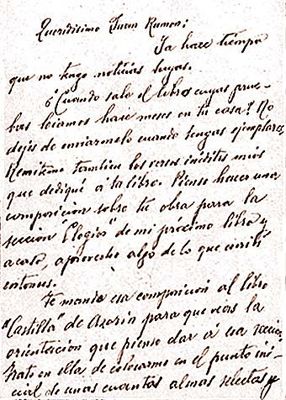 Queridisimo Juan Ramon:
Ya hace tiempo
que no tengo noticias tuyas.
¿Cuando sale el libro cuyas prue-
bas leiamos hace meses en tu casa? No
dejes de enviarmelo cuando tengas ejemplares.
Remiteme tambien los versos inéditos mios
que dediqué a tu libro. Pienso hacer una
composicion sobre tu obra para la
sección "Elogios" de mi proximo libro y
acaso, aproveche algo de lo que escribí
entonces.
Te mando esa composicion al libro
"Castilla" de Azorin para que veas la
orientación que pienso dar á esa sección.
Trato en ella de colocarme en el punto ini-
cial de unas cuantas almas selectas y